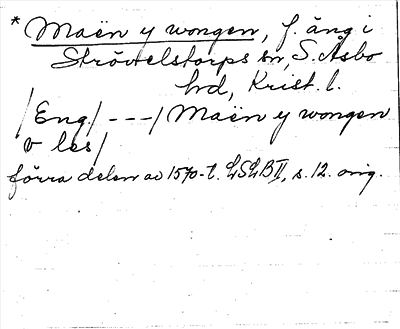 * Maën y wongen, f. äng i
Strövelstorps sn, S. Åsbo
hd, Krist. l.
/Eng/ ---/ Maën y wongen
v les/
förra delen av 1570-t. LSLB II, s. 12. orig.